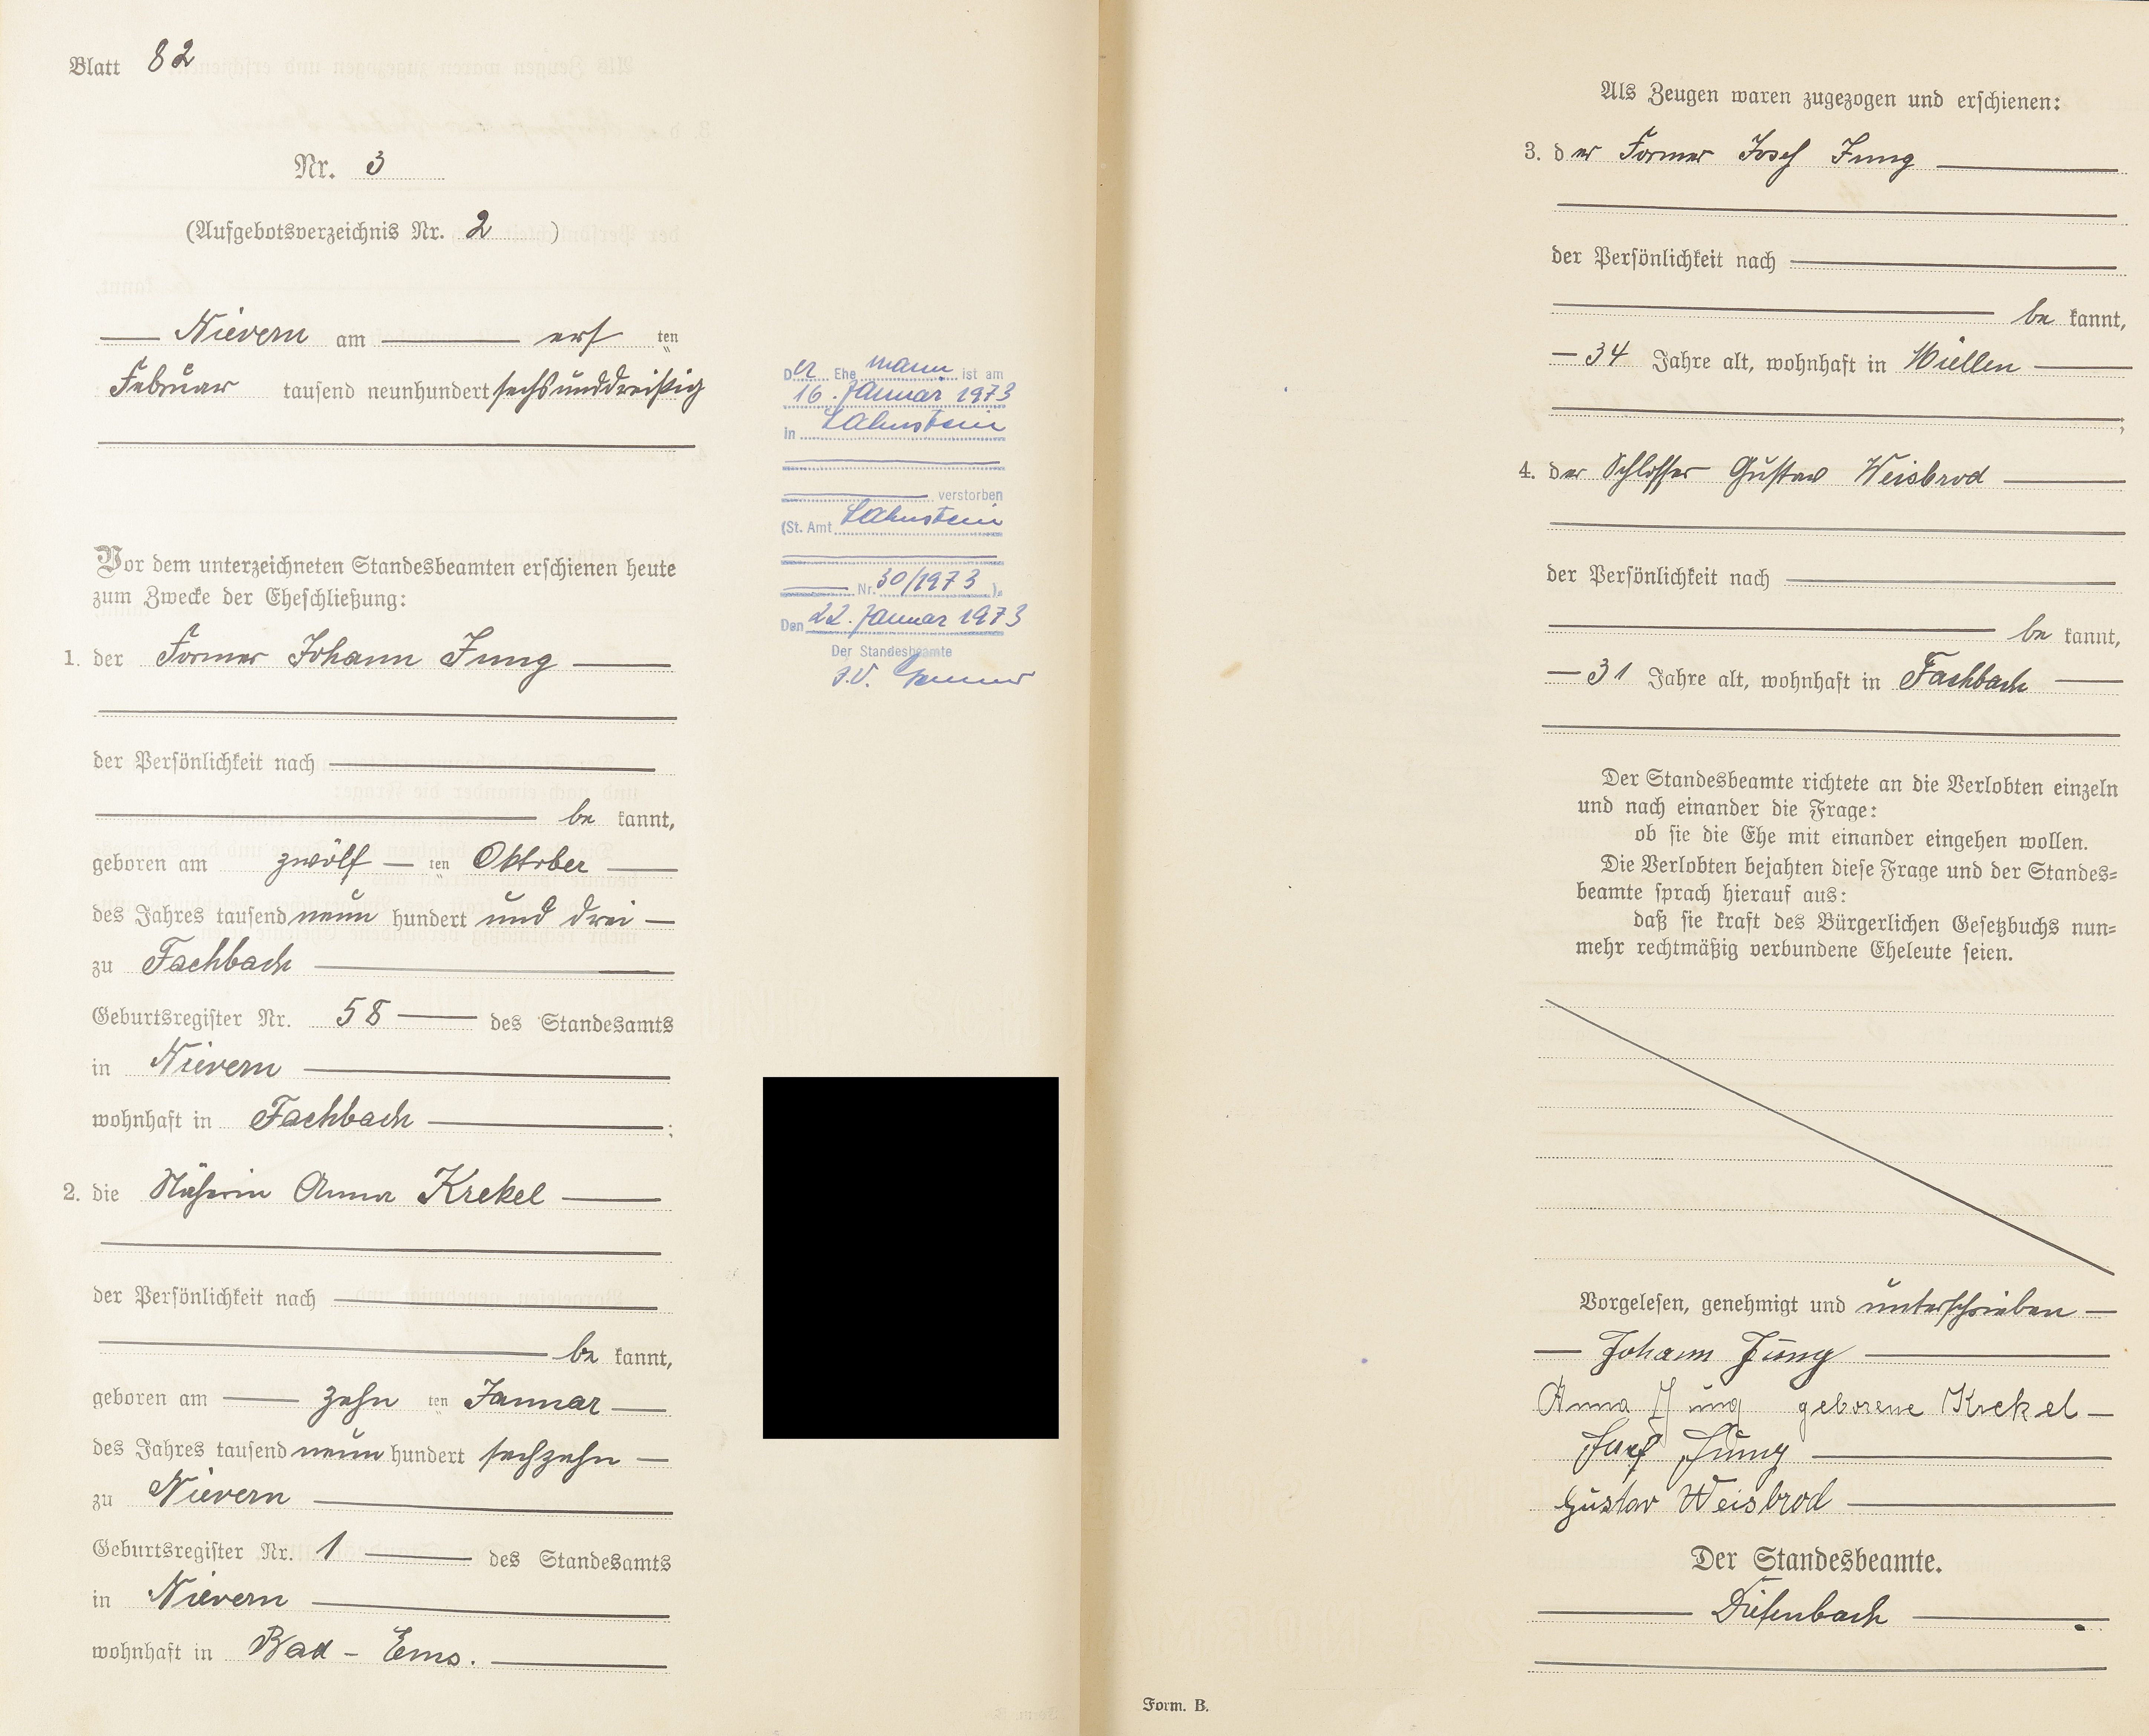 Blatt 82
Nr. 3
(Aufgebotsverzeichnis Nr. 2)
Nievern am erſ ten
Februar tauſend neunhundert ſechsunddreißig
Vor dem unterzeichneten Standesbeamten erſchienen heute
zum Zwecke der Eheſchließung:
1. der Former Johann Jung
der Perſönlichkeit nach
be kannt,
geboren am zwölf ten Oktober
des Jahres tauſend neun hundert und drei
zu Fachbach
Geburtsregiſter Nr. 58 des Standesamts
in Nievern
wohnhaft in Fachbach ;
2. die Näherin Anna Krekel
der Perſönlichkeit nach
be kannt,
geboren am zehn ten Januar
des Jahres tauſend neun hundert ſechzehn
zu Nievern
Geburtsregiſter Nr. 1 des Standesamts
in Nievern
wohnhaft in Bad - Ems.
Der Ehemann ist am
16. Januar 1973
in Lahnstein
verstorben
(St. Amt Lahnstein
Nr. 30/1973 ).
Den 22. Januar 1973
Der Standesbeamte
I.V.
Als Zeugen waren zugezogen und erſchienen:
3. der Former Josef Jung
der Perſönlichkeit nach
be kannt,
34 Jahre alt, wohnhaft in Miellen
;
4. der Schloſſer Guſtav Weisbrod
der Perſönlichkeit nach
be kannt,
31 Jahre alt, wohnhaft in Fachbach
Der Standesbeamte richtete an die Verlobten einzeln
und nach einander die Frage:
ob ſie die Ehe mit einander eingehen wollen.
Die Verlobten bejahten dieſe Frage und der Standes=
beamte ſprach hierauf aus:
daß ſie kraft des Bürgerlichen Geſetzbuchs nun=
mehr rechtmäßig verbundene Eheleute ſeien.
Vorgeleſen, genehmigt und unterſchrieben
Johann Jung
Anna Jung geborene Krekel
Josef Jung
Gustav Weisbrod
Der Standesbeamte.
Diefenbach
Form. B.